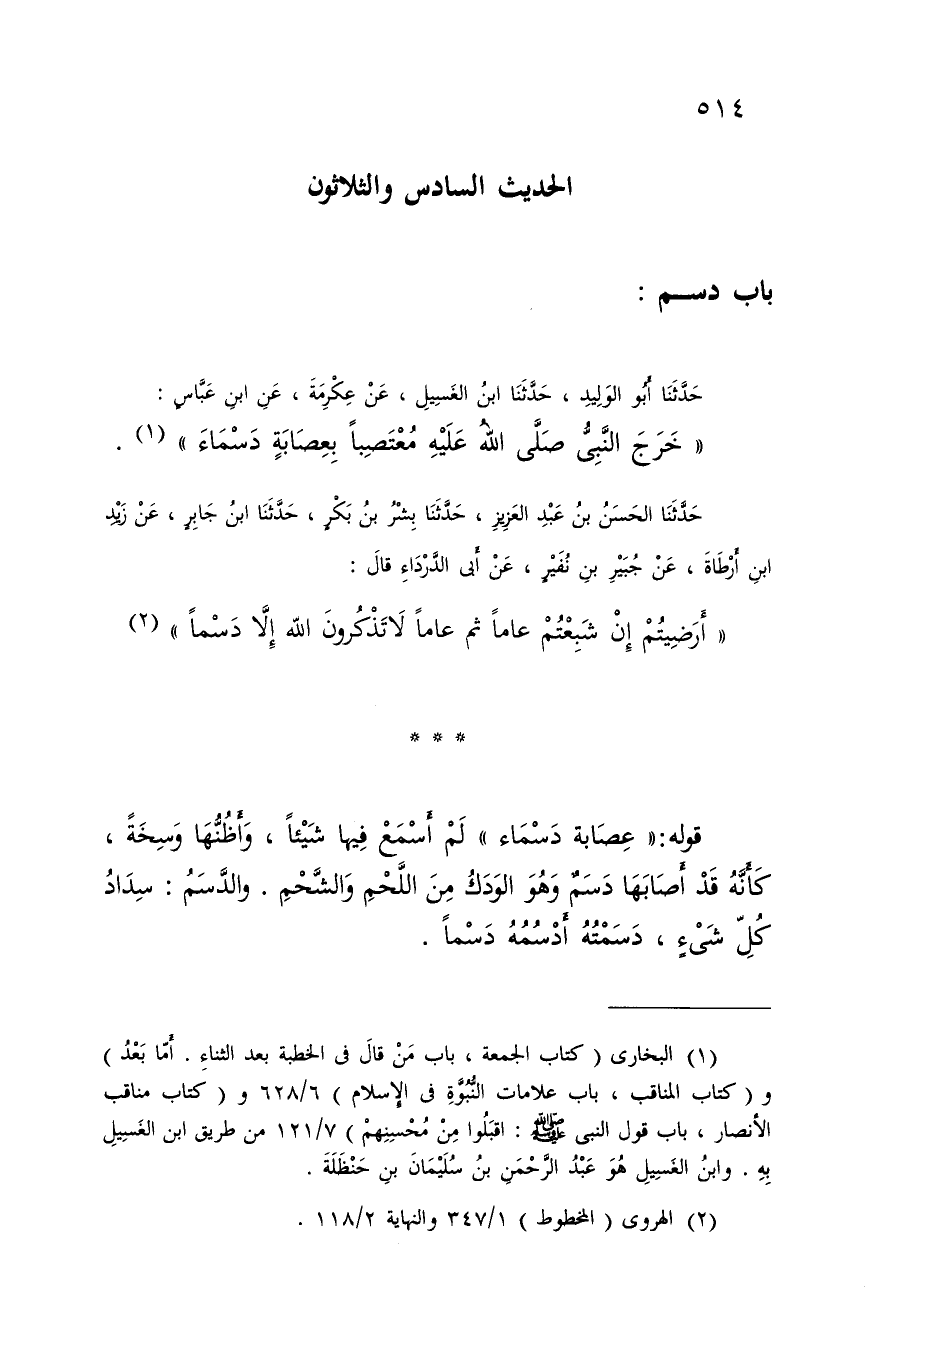 ٥١٤
الحديث السادس والثلاثون
باب دســم :
حَدَّثَنَا أَبُو الوَلِيدِ ، حَدَّثَنَا ابنُ الغَسِيلِ ، عَنْ عِكْرِمَةَ ، عَنِ ابنِ عَبَّاسٍ :
« خَرَجَ النَّبِىُّ صَلَّى اللهُ عَلَيْهِ مُعْتَصِباً بِعِصَابَةٍ دَسْمَاءَ » (١) .
حَدَّثَنَا الحَسَنُ بنُ عَبْدِ العَزِيزِ ، حَدَّثَنَا بِشْرُ بنُ بَكْرٍ ، حَدَّثَنَا ابنُ جَابِرٍ ، عَنْ زَيْدِ
ابنِ أَرْطَاةَ ، عَنْ جُبَيْرِ بنِ نُفَيْرٍ ، عَنْ أَبى الدَّرْدَاءِ قالَ :
« أَرَضِيتُمْ إِنْ شَبِعْتُمْ عاماً ثم عاماً لَاتَذْكُرونَ الله إِلَّا دَسْماً » (٢)
* * *
قوله :« عِصَابة دَسْمَاء » لَمْ أَسْمَعْ فِيها شَيْئاً ، وَأَظُنُّهَا وَسِخَةً ،
كَأَنَّهُ قَدْ أَصَابَهَا دَسَمٌ وَهُوَ الوَدَكُ مِنَ اللَّحْمِ وَالشَّحْمِ . والدَّسَمُ : سِدَادُ
كُلِّ شَىْءٍ ، دَسَمْتُهُ أَدْسُمُهُ دَسْماً .
(١) البخارى ( كتاب الجمعة ، باب مَنْ قالَ فى الخطبة بعد الثناءِ . أَمّا بَعْدُ )
و ( كتاب المناقب ، باب علامات النُّبُوَّةِ فى الإِسلام ) ٦٢٨/٦ و ( كتاب مناقب
الأنصار ، باب قول النبى ﷺ : اقبَلُوا مِنْ مُحْسِنِهِمْ ) ١٢١/٧ من طريق ابن الغَسِيلِ
بِهِ . وابنُ الغَسِيلِ هُوَ عَبْدُ الرَّحْمَنِ بنُ سُلَيْمَانَ بنِ حَنْظَلَةَ .
(٢) الهروى ( المخطوط ) ٣٤٧/١ والنهاية ١١٨/٢ .